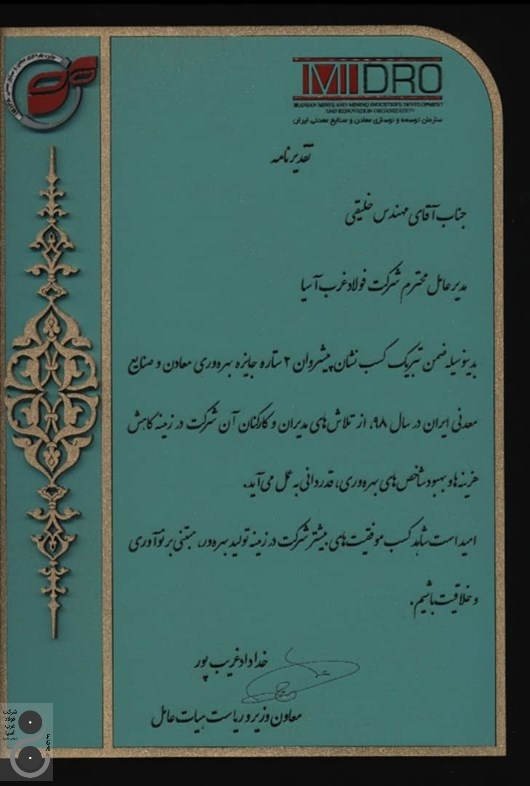 IMIDRO
IRANIAN MINES AND MINING INDUSTRIES DEVELOPMENT
AND RENOVATION ORGANIZATION
سازمان توسعه و نوسازی معادن و صنایع معدنی ایران
تقدیرنامه
جناب آقای مهندس خلیقی
مدیرعامل محترم شرکت فولاد غرب آسیا
بدینوسیله ضمن تبریک کسب نشان پیشروان ۲ ستاره جایزه بهره‌وری معادن و صنایع
معدنی ایران در سال ۹۸، از تلاش‌های مدیران و کارکنان آن شرکت در زمینه کاهش
هزینه‌ها و بهبود شاخص‌های بهره‌وری، قدردانی به عمل می‌آید.
امید است شاهد کسب موفقیت‌های بیشتر شرکت در زمینه تولید بهره‌ور، مبتنی بر نوآوری
و خلاقیت باشیم.
خداداد غریب پور
معاون وزیر و ریاست هیات عامل
شرکت
فولاد
غرب
آسیا